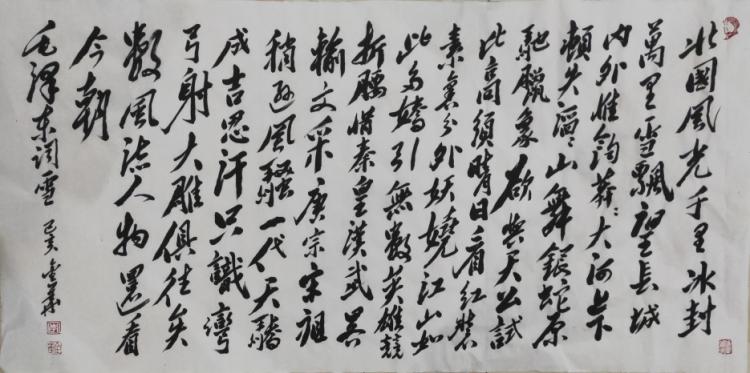 北國風光千里冰封
萬里雪飄望長城
内外惟餘莽〻大河上下
頓失滔〻山舞銀蛇原
馳臘象欲與天公試
比高須晴日看紅裝
素裹分外妖嬈江山如
此多嬌引無數英雄競
折腰惜秦皇漢武畧
輸文采唐宗宋祖
稍遜風騷一代天驕
成吉思汗只識彎
弓射大雕俱往矣
數風流人物還看
今朝
毛澤東詞雪 己亥